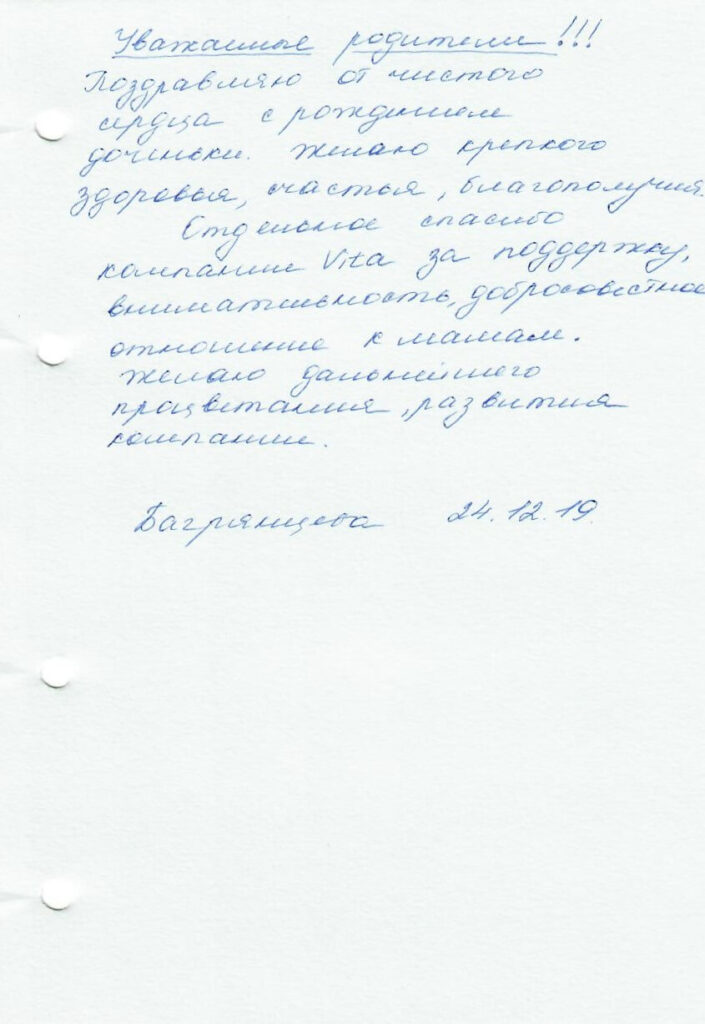 Уважаемые родители!!!
Поздравляю от чистого
сердца с рождением
дочиньки. Желаю крепкого
здоровья, счастья, благополучия.
Отдельное спасибо
компании Vita за поддержку,
внимательность, добросовестное
отношение к мамам.
Желаю дальнейшего
працветания, развития
компании.
Багрянцева 24.12.19.